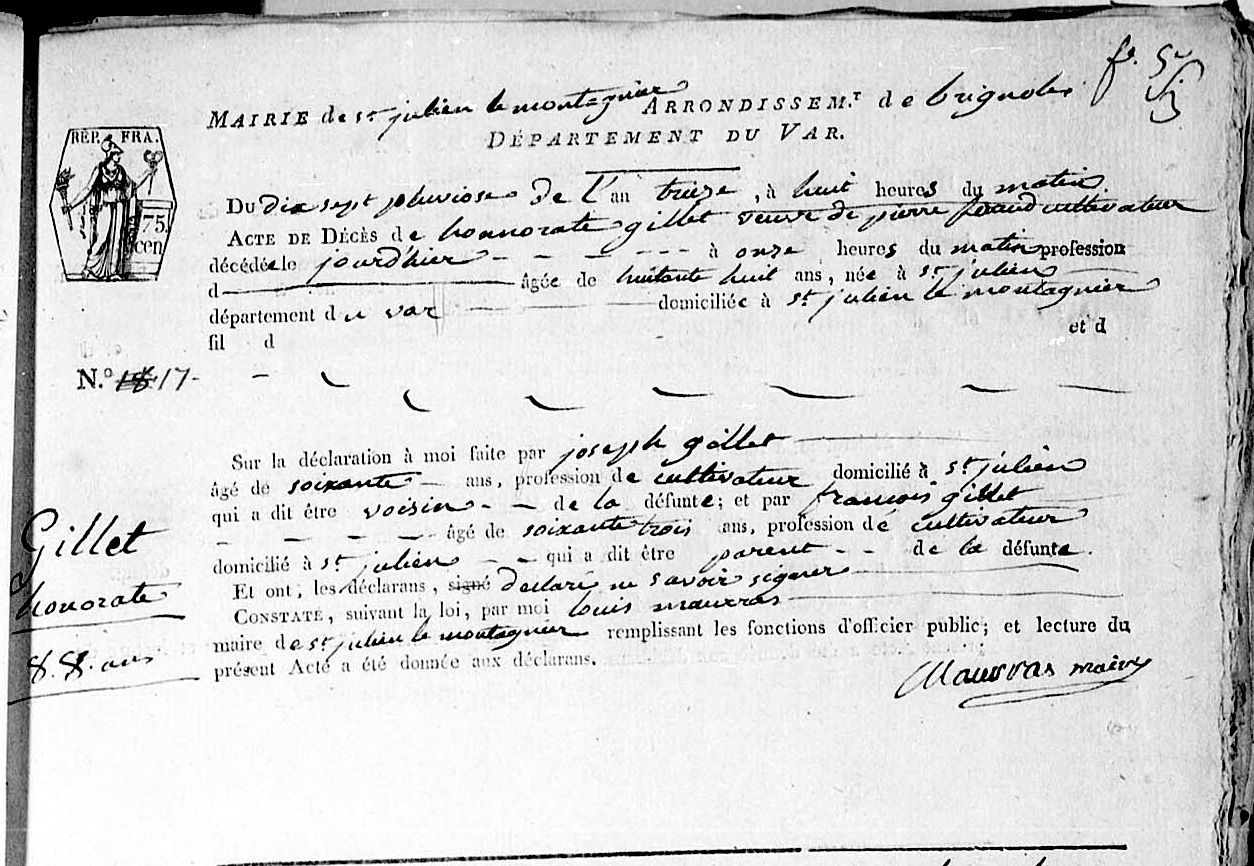 fo. 5
MAIRIE de st julien le montagnier ARRONDISSEM.T de brignoles
DÉPARTEMENT DU VAR.
RÉP. FRA.
75
cen
DU dix sept pluviose de l'an treize, à huit heures du matin
ACTE DE DÉCÈS de honnorate gillet veuve de pierre cultivateur
décédée le jourd'hier - - - - - à onze heures du matin profession
d âgée de huitante huit ans, née à st julien
département du var domiciliée à st julien le montagnier
fil d et d
N.o 18 17-
Sur la déclaration à moi faite par joseph gillet
âgé de soixante ans, profession de cultivateur domicilié à st julien
qui a dit être voisin - - de la défunte; et par francois gillet
- - - - âgé de soixante trois ans, profession de cultivateur
domicilié à st julien - - qui a dit être parent - - de la défunte.
Et ont, les déclarans, signé declaré ne savoir signer
CONSTATÉ, suivant la loi, par moi louis maurras
maire de st julien le montagnier remplissant les fonctions d'officier public; et lecture du
présent Acte a été donnée aux déclarans.
Maurras maire
Gillet
honorate
88. ans